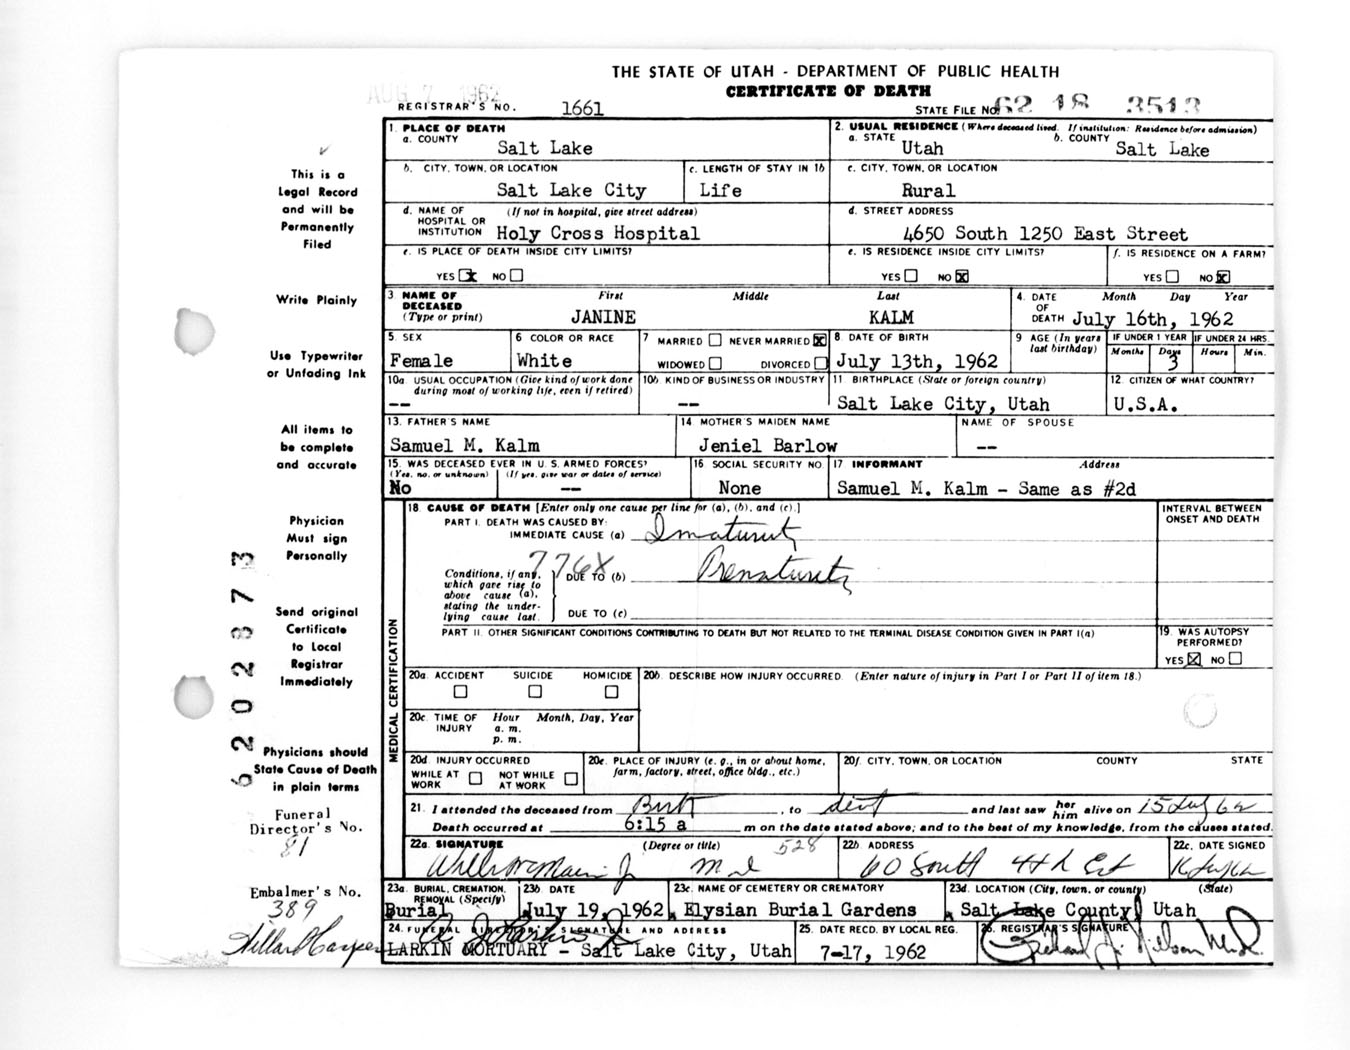 THE STATE OF UTAH - DEPARTMENT OF PUBLIC HEALTH
CERTIFICATE OF DEATH
AUG 7 1962
REGISTRAR'S NO. 1661
STATE FILE NO. 62 18 3513
This is a Legal Record and will be Permanently Filed
Write Plainly
Use Typewriter or Unfading Ink
All items to be complete and accurate
Physician Must sign Personally
Send original Certificate to Local Registrar Immediately
Physicians should State Cause of Death in plain terms
Funeral Director's No. 81
Embalmer's No. 389
6202873
1. PLACE OF DEATH
a. COUNTY Salt Lake
2. USUAL RESIDENCE (Where deceased lived. If institution: Residence before admission)
a. STATE Utah b. COUNTY Salt Lake
b. CITY, TOWN, OR LOCATION Salt Lake City
c. LENGTH OF STAY IN 1b Life
c. CITY, TOWN, OR LOCATION Rural
d. NAME OF HOSPITAL OR INSTITUTION (If not in hospital, give street address) Holy Cross Hospital
d. STREET ADDRESS 4650 South 1250 East Street
e. IS PLACE OF DEATH INSIDE CITY LIMITS? YES X NO
e. IS RESIDENCE INSIDE CITY LIMITS? YES NO X
f. IS RESIDENCE ON A FARM? YES NO X
3 NAME OF DECEASED (Type or print) First Middle Last
JANINE KALM
4. DATE OF DEATH Month Day Year
July 16th, 1962
5. SEX Female
6 COLOR OR RACE White
7 MARRIED NEVER MARRIED X WIDOWED DIVORCED
8. DATE OF BIRTH July 13th, 1962
9 AGE (In years last birthday) IF UNDER 1 YEAR Months Days 3 IF UNDER 24 HRS. Hours Min.
10a. USUAL OCCUPATION (Give kind of work done during most of working life, even if retired) --
10b. KIND OF BUSINESS OR INDUSTRY --
11. BIRTHPLACE (State or foreign country) Salt Lake City, Utah
12. CITIZEN OF WHAT COUNTRY? U.S.A.
13. FATHER'S NAME Samuel M. Kalm
14. MOTHER'S MAIDEN NAME Jeniel Barlow
NAME OF SPOUSE --
15. WAS DECEASED EVER IN U.S. ARMED FORCES? (Yes, no, or unknown) (If yes, give war or dates of service) No --
16 SOCIAL SECURITY NO. None
17 INFORMANT Address
Samuel M. Kalm - Same as #2d
MEDICAL CERTIFICATION
18. CAUSE OF DEATH [Enter only one cause per line for (a), (b), and (c).]
INTERVAL BETWEEN ONSET AND DEATH
PART I. DEATH WAS CAUSED BY:
IMMEDIATE CAUSE (a) Imaturity
776X
Conditions, if any, which gave rise to above cause (a), stating the underlying cause last.
DUE TO (b) Prematurity
DUE TO (c)
PART II. OTHER SIGNIFICANT CONDITIONS CONTRIBUTING TO DEATH BUT NOT RELATED TO THE TERMINAL DISEASE CONDITION GIVEN IN PART I(a)
19. WAS AUTOPSY PERFORMED? YES X NO
20a. ACCIDENT SUICIDE HOMICIDE
20b. DESCRIBE HOW INJURY OCCURRED. (Enter nature of injury in Part I or Part II of item 18.)
20c. TIME OF INJURY Hour a. m. p. m. Month, Day, Year
20d. INJURY OCCURRED WHILE AT WORK NOT WHILE AT WORK
20e. PLACE OF INJURY (e. g., in or about home, farm, factory, street, office bldg., etc.)
20f. CITY, TOWN, OR LOCATION COUNTY STATE
21. I attended the deceased from Birth, to and last saw her him alive on 15 July 62
Death occurred at 6:15 a m on the date stated above; and to the best of my knowledge, from the causes stated.
22a. SIGNATURE (Degree or title) 528
22b. ADDRESS 60 South 4th East
22c. DATE SIGNED
23a. BURIAL, CREMATION, REMOVAL (Specify) Burial
23b. DATE July 19, 1962
23c. NAME OF CEMETERY OR CREMATORY Elysian Burial Gardens
23d. LOCATION (City, town, or county) (State) Salt Lake County, Utah
24. FUNERAL DIRECTOR'S SIGNATURE AND ADDRESS
LARKIN MORTUARY - Salt Lake City, Utah
25. DATE RECD. BY LOCAL REG. 7-17, 1962
26. REGISTRAR'S SIGNATURE